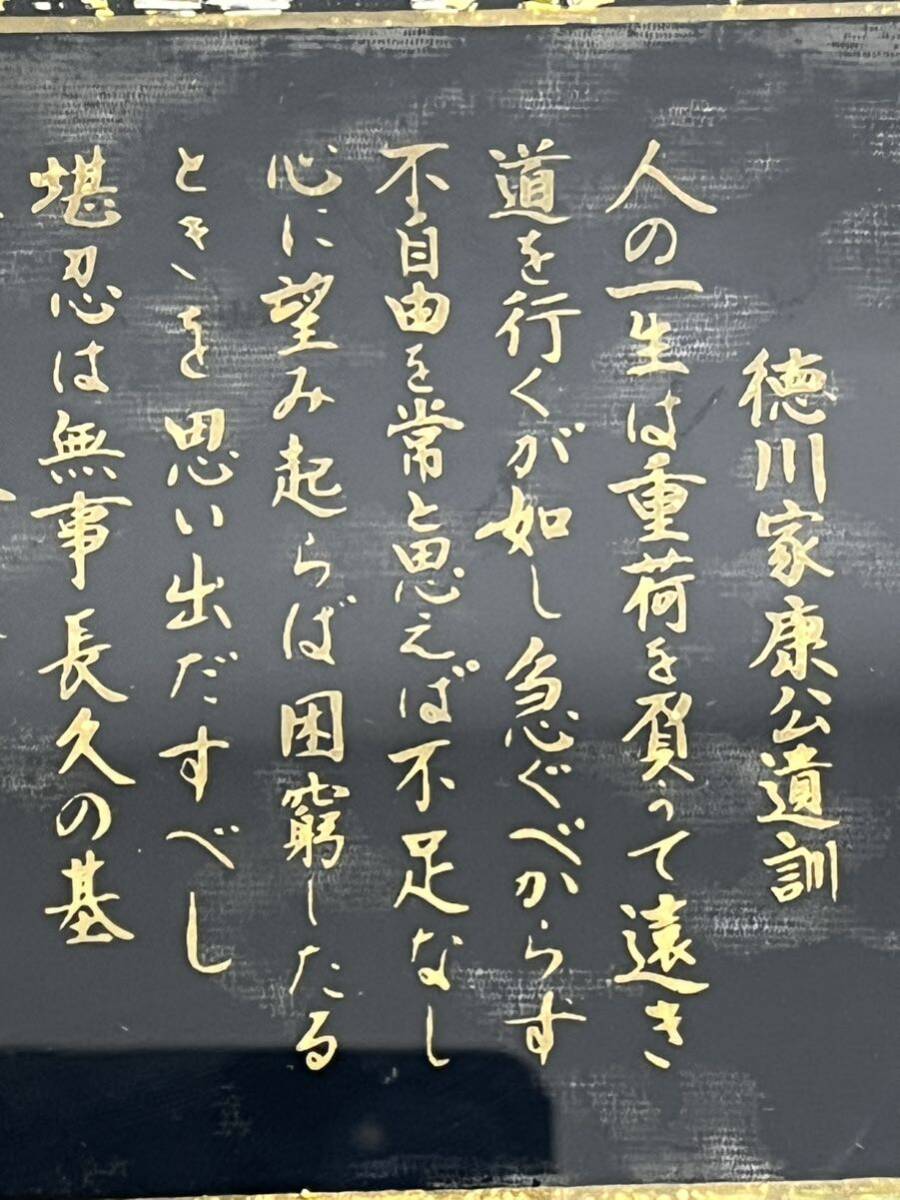 徳川家康公遺訓
人の一生は重荷を負って遠き
道を行くが如し急ぐべからす
不自由を常と思えば不足なし
心に望み起らば困窮したる
ときを思い出だすべし
堪忍は無事長久の基